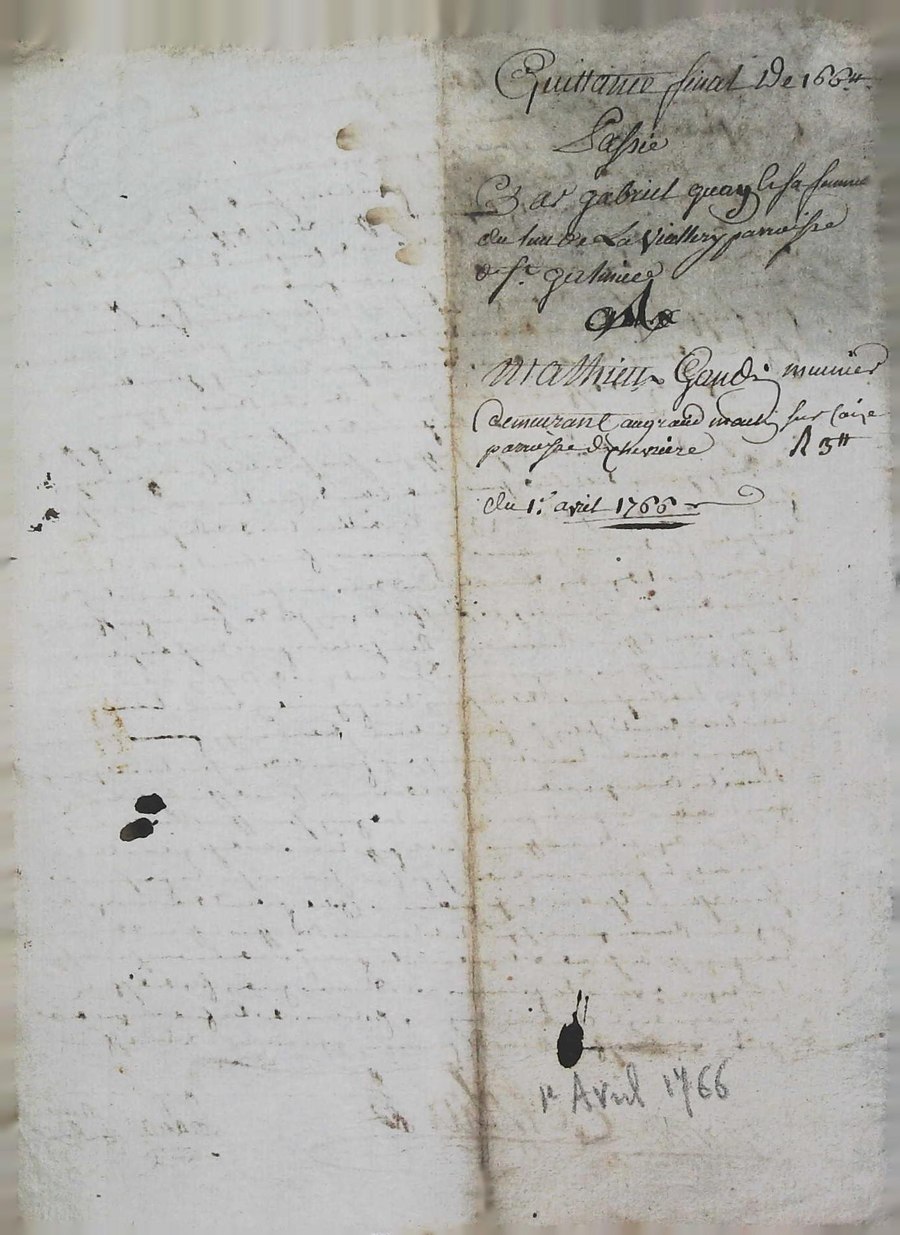 Quittance finat De 166tt
Passée
Par gabriel quay & sa femme
du lieu de La Viallery parroisse
de St. galmier
a
Mathieu Gandi munier
demeurant au grand moulin sur Coize
parroisse de chevriere
R 3tt
du 1r. avril 1766
1r Avril 1766